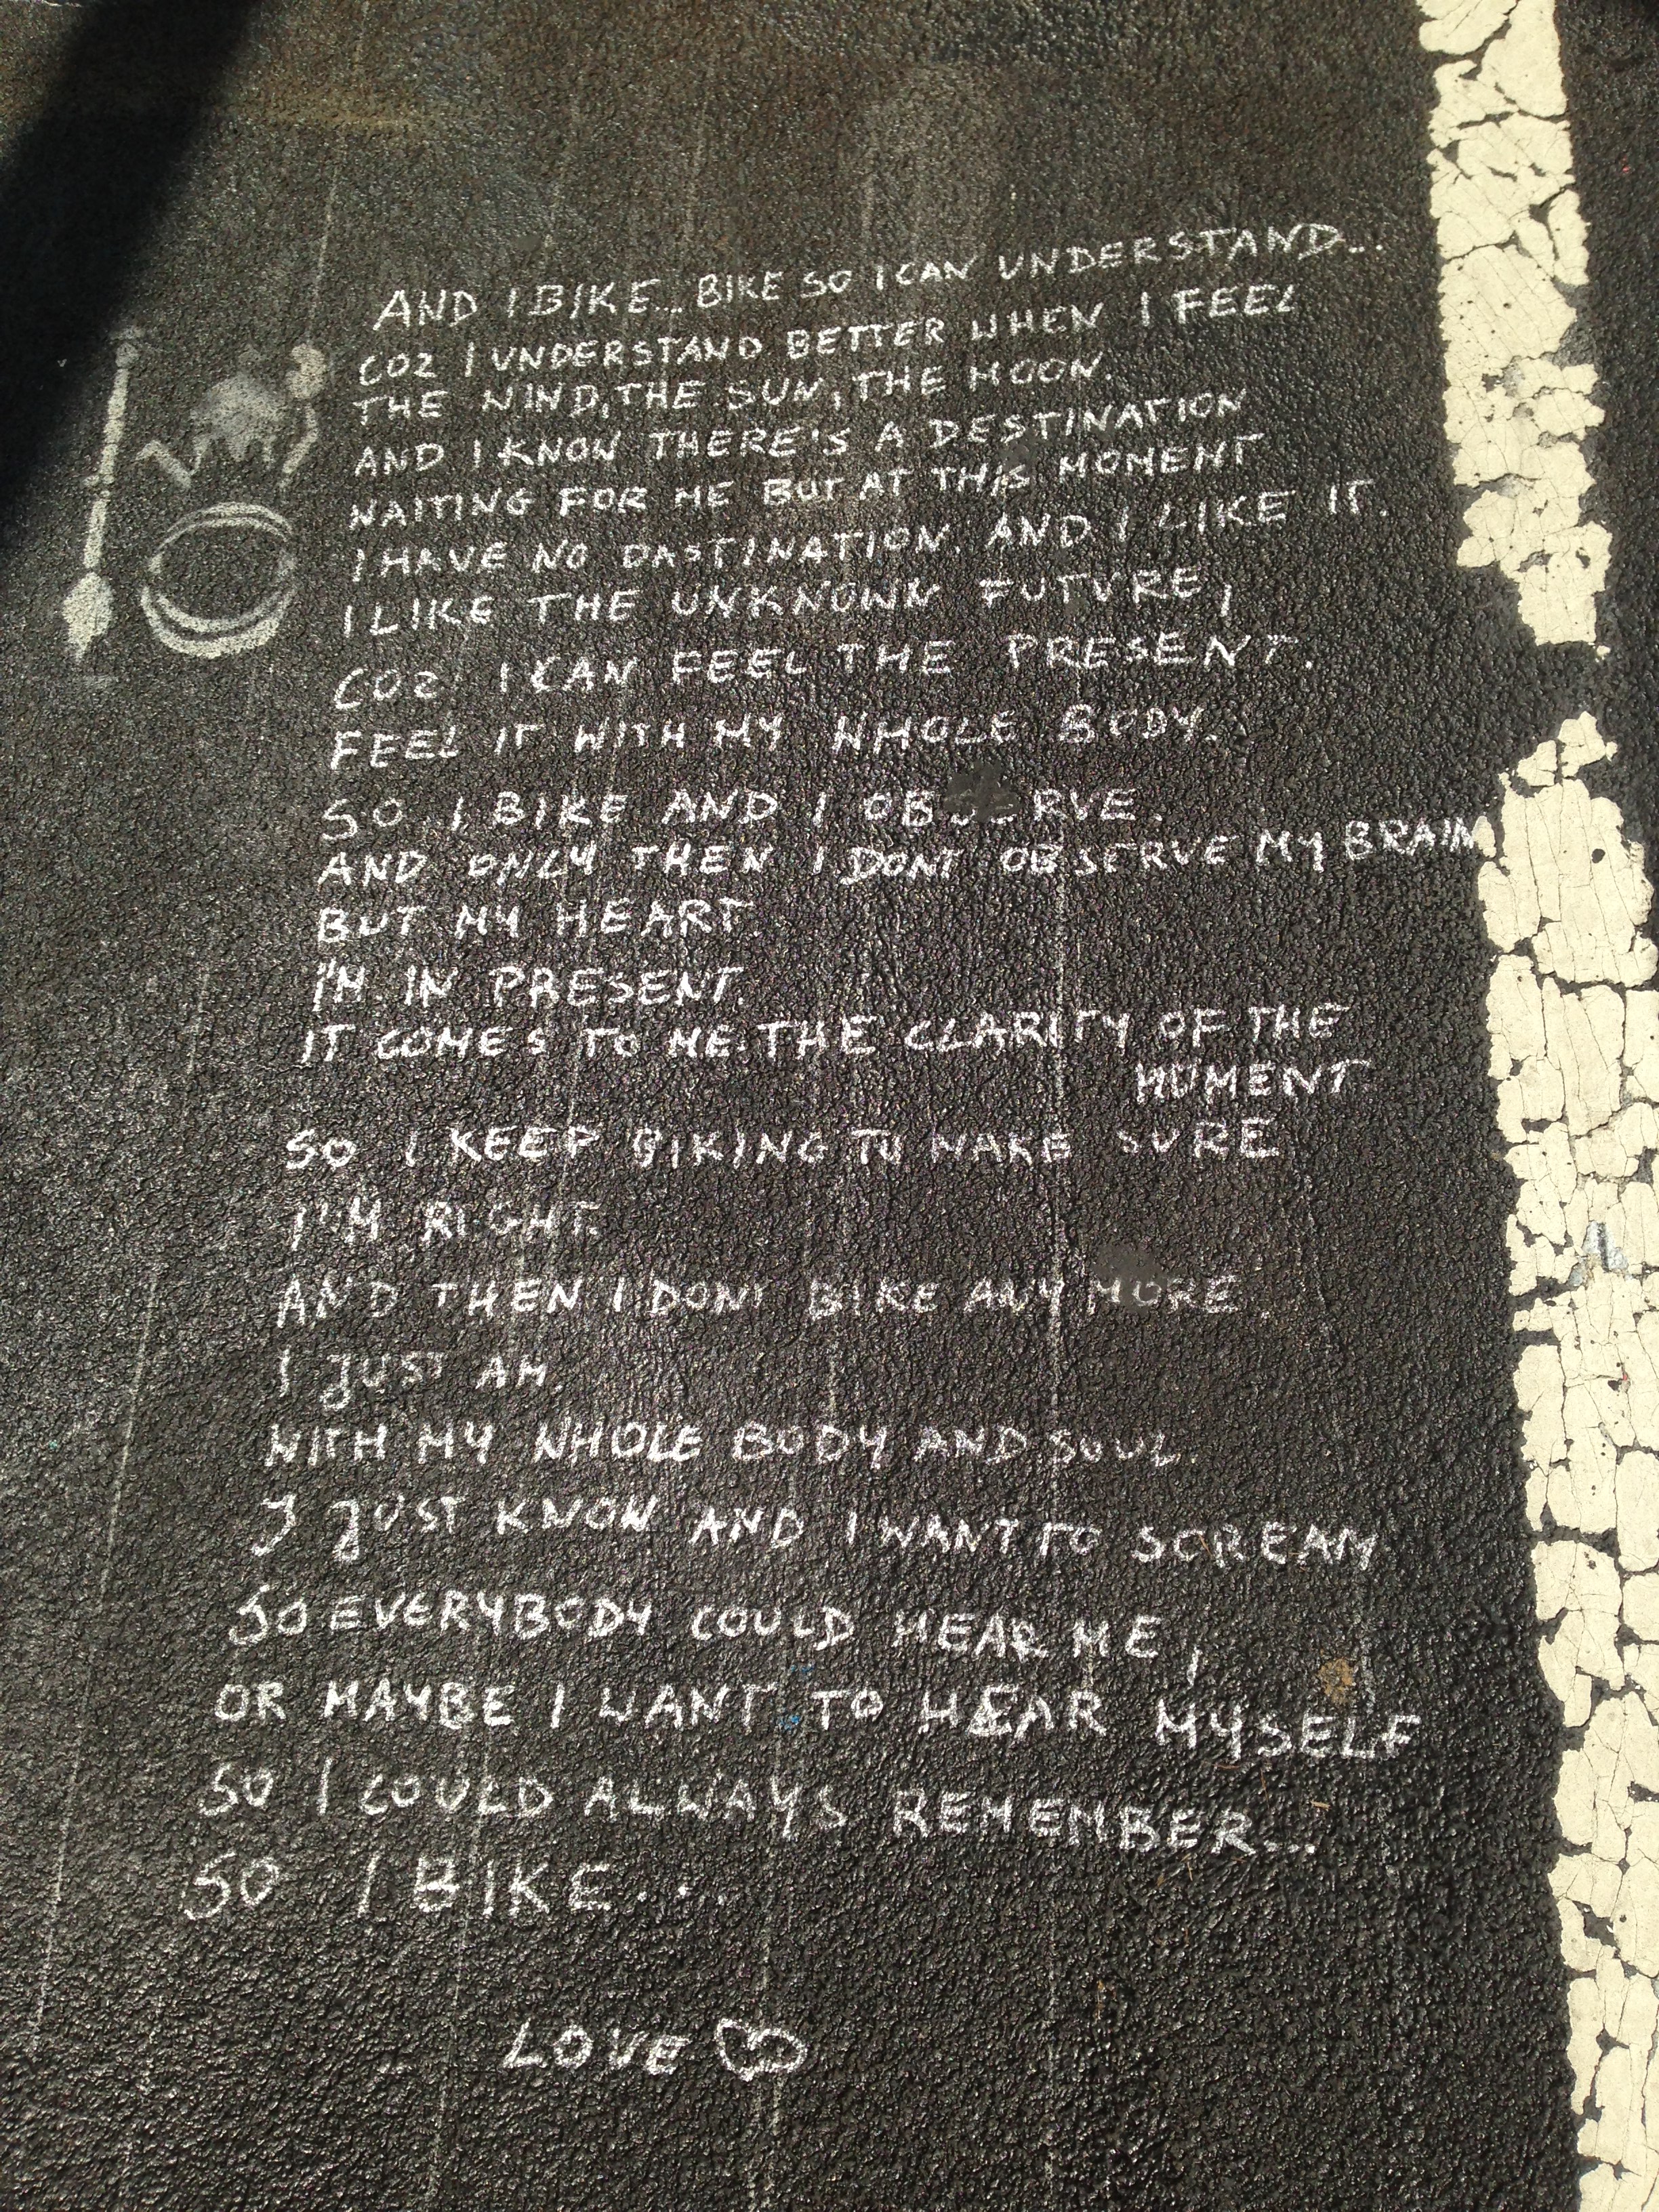 AND I BIKE... BIKE SO I CAN UNDERSTAND...
COZ I UNDERSTAND BETTER WHEN I FEEL
THE WIND, THE SUN, THE MOON.
AND I KNOW THERE'S A DESTINATION
WAITING FOR ME BUT AT THIS MOMENT
I HAVE NO DASTINATION. AND I LIKE IT.
I LIKE THE UNKNOWN FUTURE,
COZ I CAN FEEL THE PRESENT.
FEEL IT WITH MY WHOLE BODY.
SO I BIKE AND I OBSERVE.
AND ONLY THEN I DONT OBSERVE MY BRAIN
BUT MY HEART.
I'M IN PRESENT.
IT COMES TO ME THE CLARITY OF THE
MOMENT
SO I KEEP BIKING TO MAKE SURE
I'M RIGHT.
AND THEN I DONT BIKE ANYMORE.
I JUST AM.
WITH MY WHOLE BODY AND SOUL.
I JUST KNOW AND I WANT TO SCREAM
SO EVERYBODY COULD HEAR ME,
OR MAYBE I WANT TO HEAR MYSELF
SO I COULD ALWAYS REMEMBER...
SO I BIKE...
LOVE